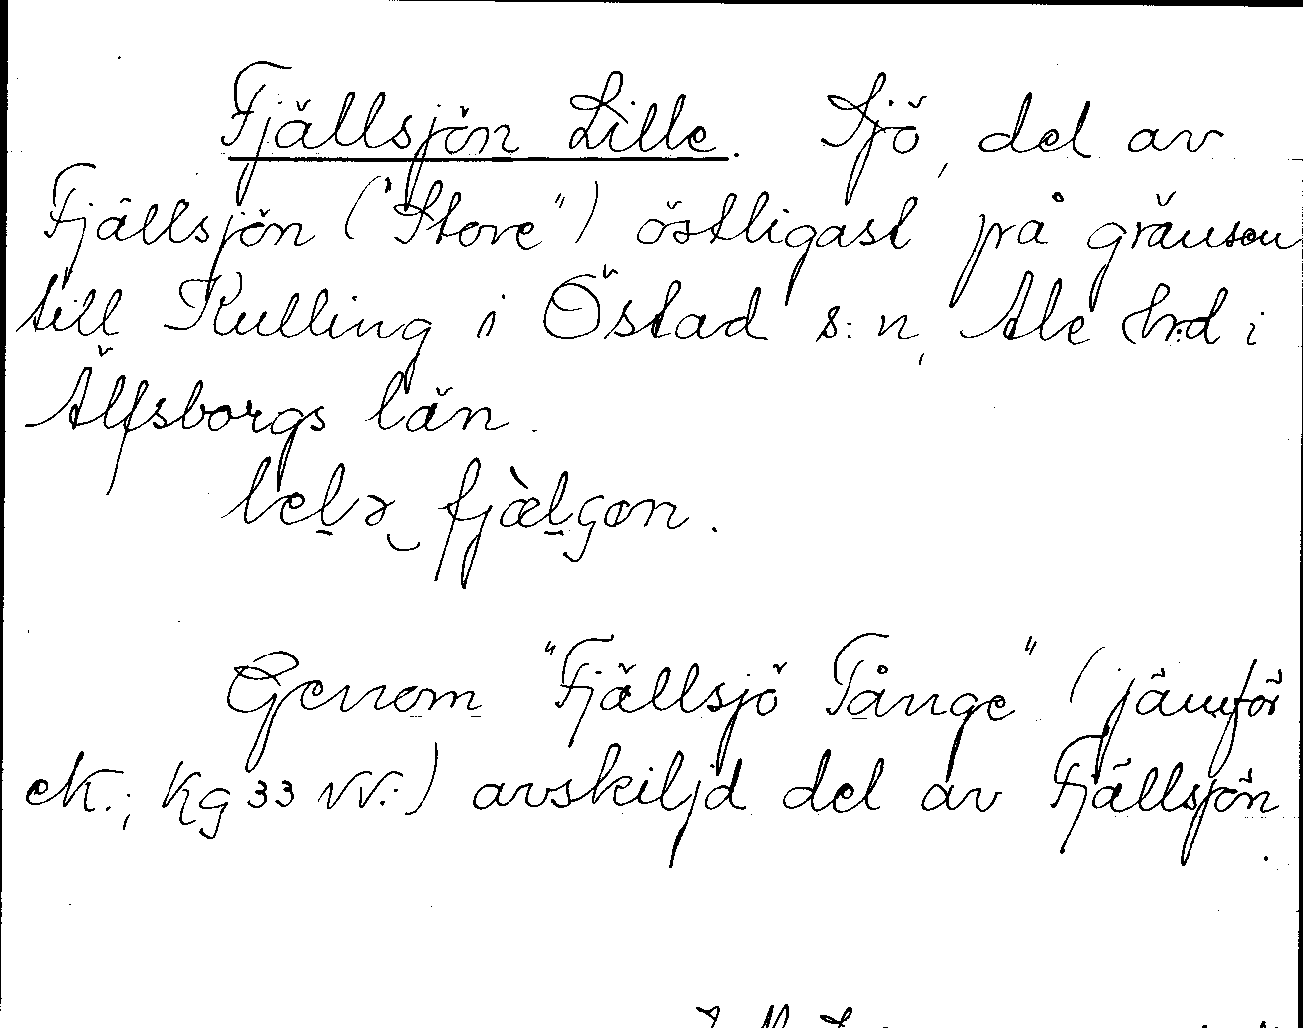 Fjällsjön Lille. Sjö, del av
Fjällsjön ("Store") östligast på gränsen
till Kulling i Östad s:n, Ale hrd i
Älfsborgs län.
fjælson.
Genom "Fjällsjö Tånge" (jämför
ek.; Kg 33 NV.) avskiljd del av Fjällsjön.